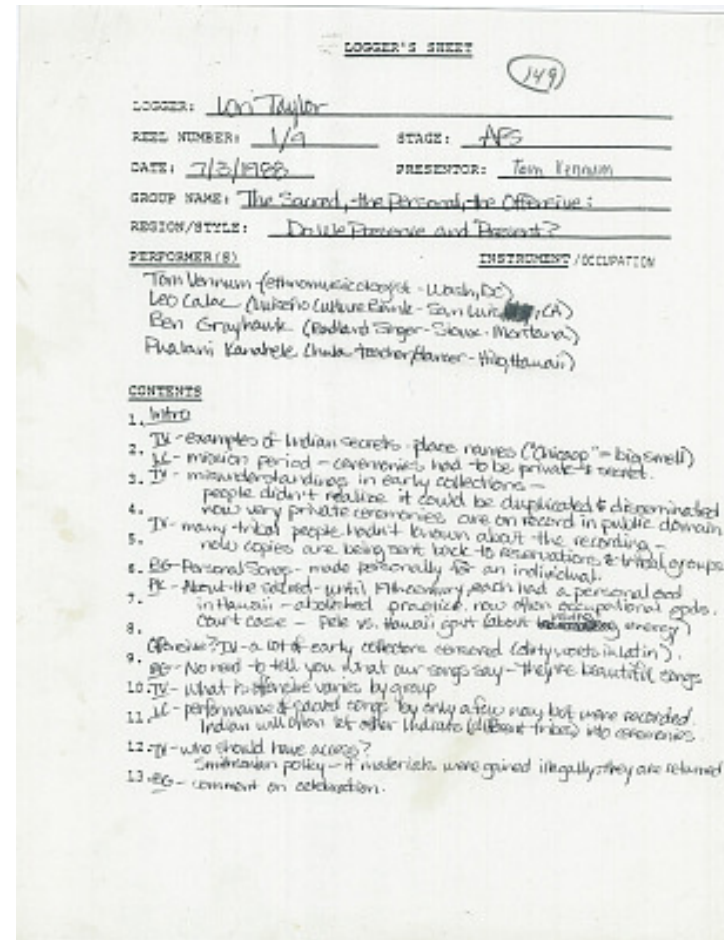 LOGGER'S SHEET
149
LOGGER: Lori Taylor
REEL NUMBER: 1/9 STAGE: AFS
DATE: 7/3/1988 PRESENTOR: Tom Vennum
GROUP NAME: The Sacred, the Personal, the Offensive:
REGION/STYLE: Do We Preserve and Present?
PERFORMER(S) INSTRUMENT/OCCUPATION
Tom Vennum (ethnomusicologist - Wash, DC)
Leo Calac (Luiseño Culture Bank - San Luis , CA)
Ben Grayhawk (Redland Singer - Sioux - Montana)
Phalani Kanahele (hula teacher/dancer - Hilo, Hawaii)
CONTENTS
1. Intro
2. TV - examples of Indian secrets - place names ("Chicago" = big smell)
LC - mission period - ceremonies had to be private & secret.
3. TV - misunderstandings in early collections -
people didn't realize it could be duplicated & disseminated
4. now very private ceremonies are on record in public domain
5. TV - many tribal people hadn't known about the recording -
now copies are being sent back to reservations & tribal groups
6. BG - Personal Songs - made personally for an individual.
7. PK - About the sacred - until 19th century, each had a personal god
in Hawaii - abolished practice, now often occupational gods.
8. Court case - Pele vs. Hawaii gov't (about energy)
9. Offensive? TV - a lot of early collectors censored (dirty words in Latin).
BG - No need to tell you what our songs say - they're beautiful songs
10. TV - What is offensive varies by group
11. LC - performance of sacred songs by only a few now but were recorded.
Indian will often let other Indians (different tribes) into ceremonies.
12. TV - who should have access?
Smithsonian policy - if materials were gained illegally, they are returned
13. BG - comment on celebration.